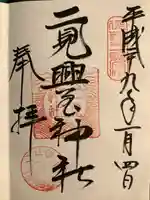 平成廿九年一月四日
二見興玉神社
奉拝